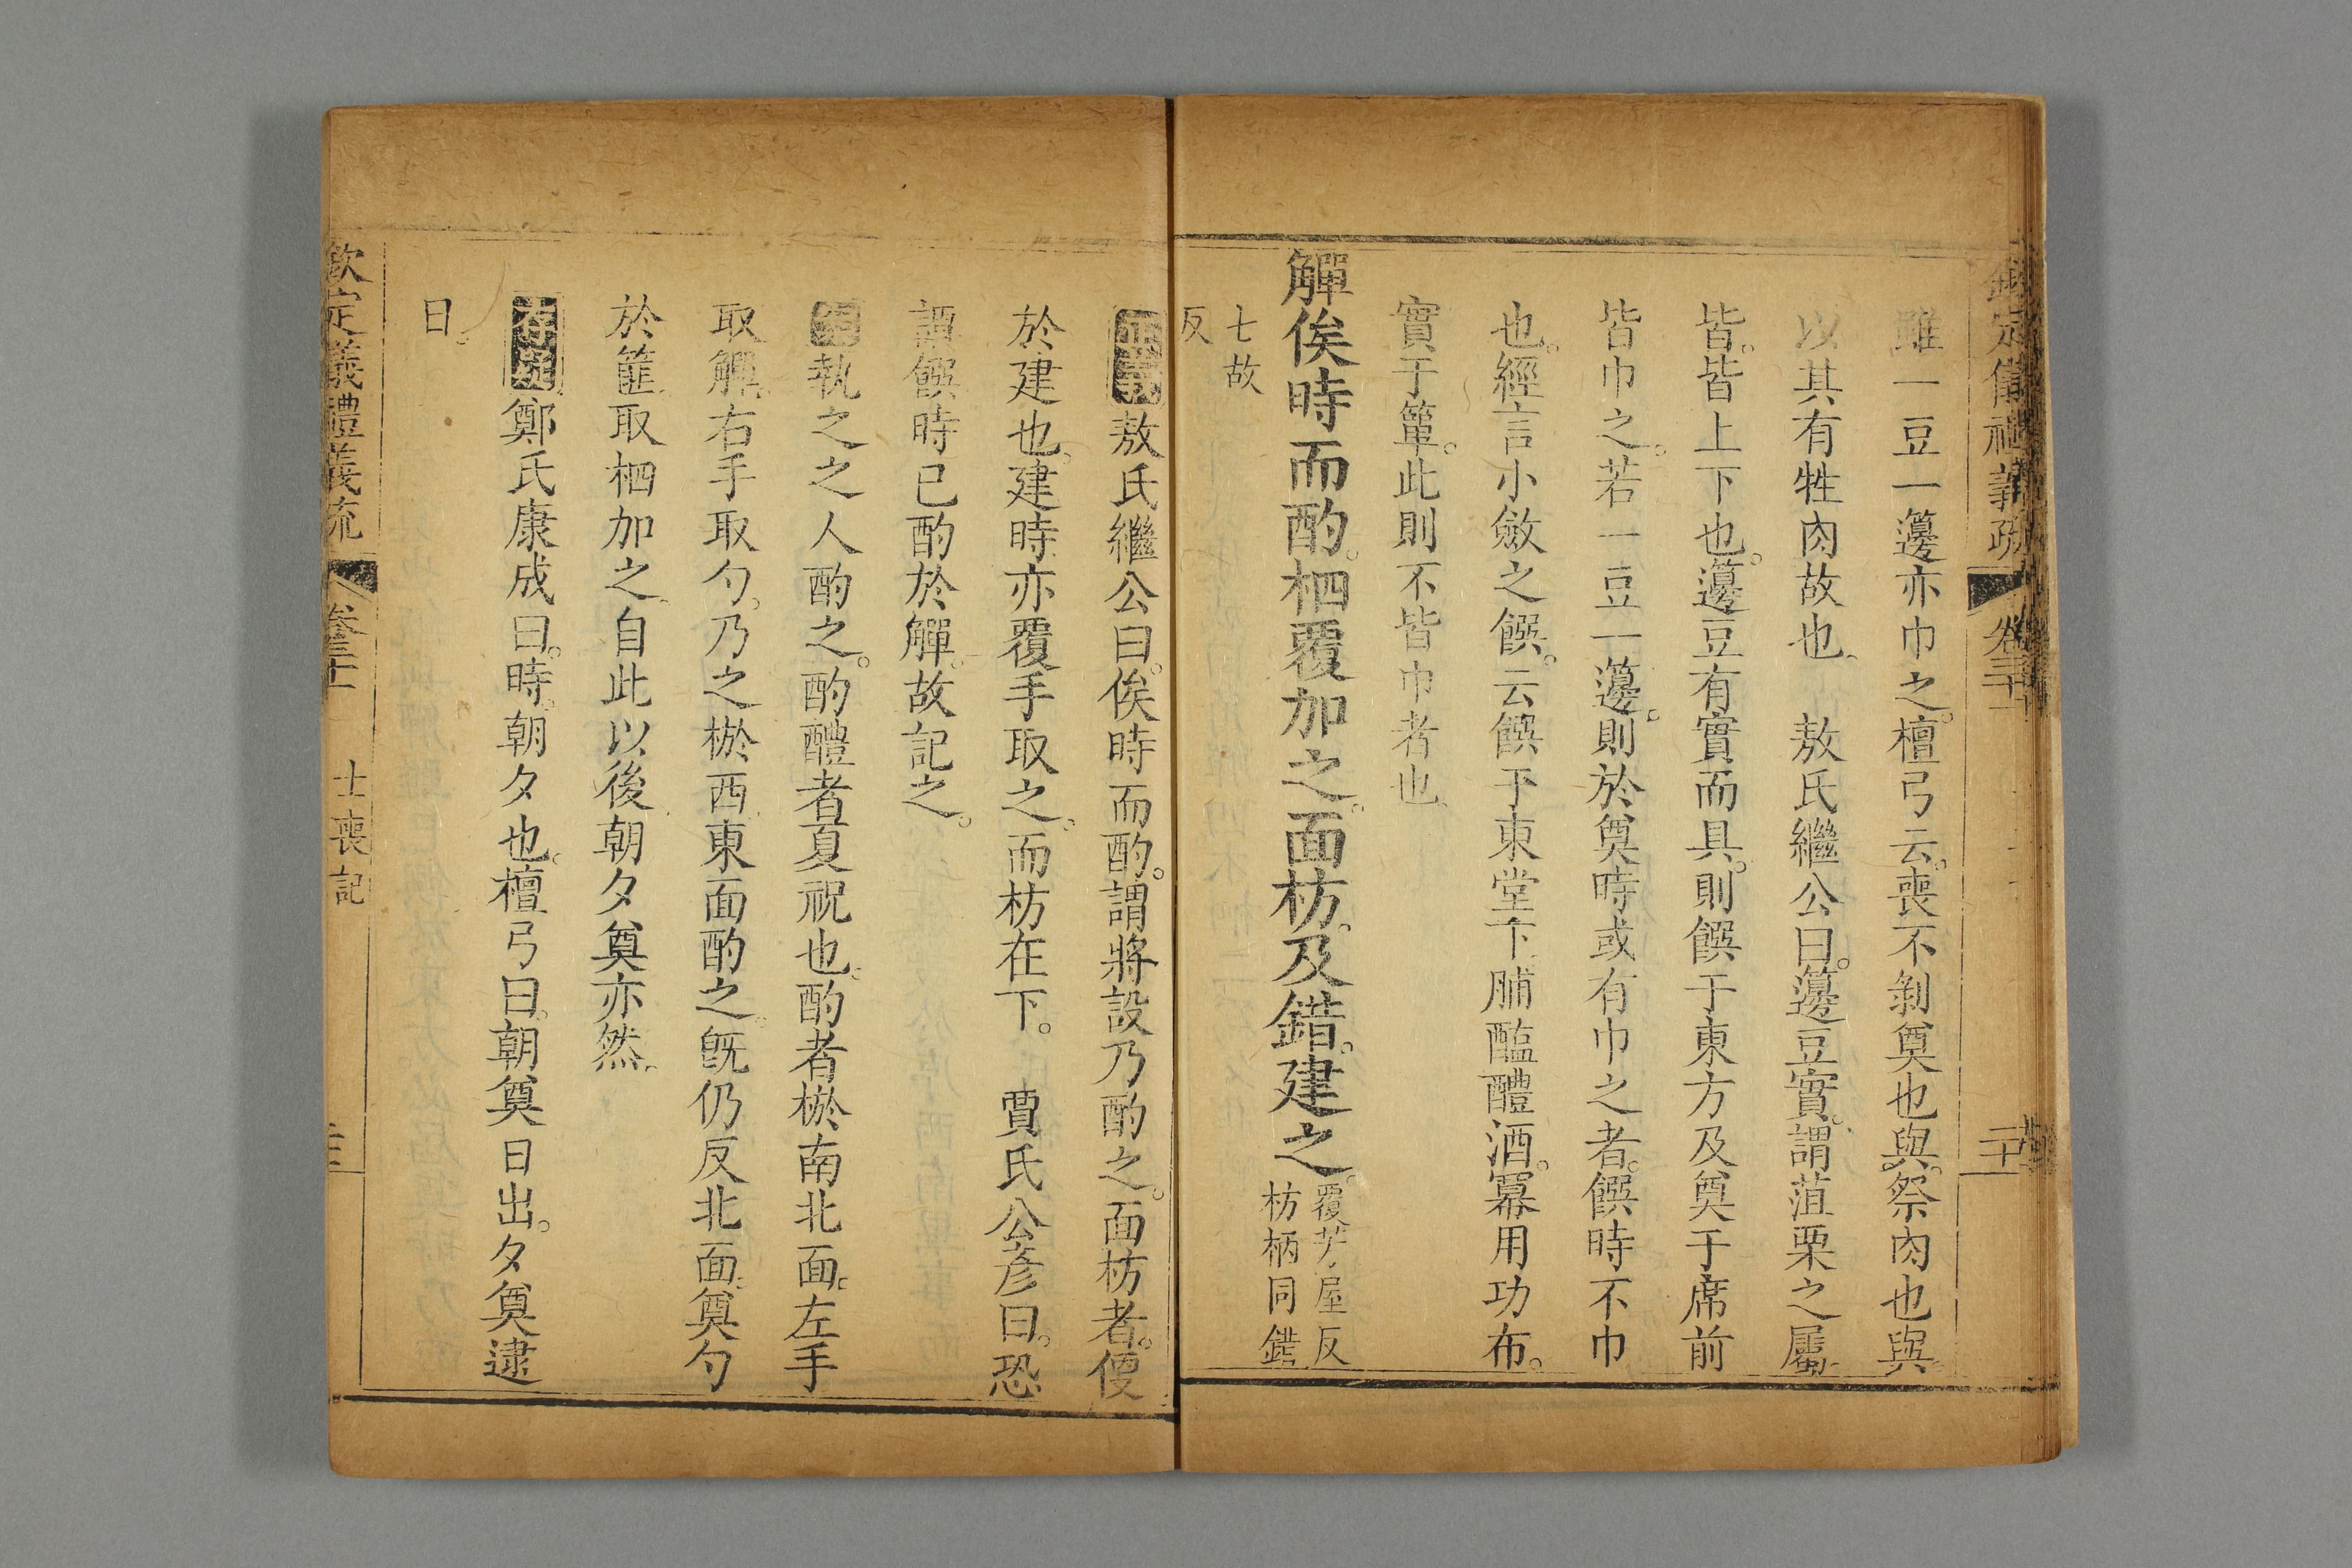 雖一豆一籩亦巾之。檀弓云。喪不剝奠也與。祭肉也與。
以其有牲肉故也、 敖氏繼公曰。籩豆實。謂菹栗之屬。
皆。皆上下也。籩豆有實而具。則饌于東方及奠于席前
皆巾之。若一豆一籩。則於奠時或有巾之者。饌時不巾
也。經言小斂之饌。云饌于東堂下脯醢醴酒。冪用功布。
實于簞。此則不皆巾者也、
觶俟時而酌。柶覆加之。面枋。及錯。建之。
覆芳屋反
枋柄同錯
七故
反
正義敖氏繼公曰。俟時而酌。謂將設乃酌之。面枋者。便
於建也。建時亦覆手取之。而枋在下。 賈氏公彥曰。恐
謂饌時已酌於觶。故記之。
執之之人酌之。酌醴者夏祝也。酌者於南北面。左手
取觶。右手取勺。乃之棜西東面酌之。既仍反北面。奠勺
於篚。取柶加之。自此以後朝夕奠亦然。
存疑鄭氏康成曰。時。朝夕也。檀弓曰。朝奠日出。夕奠逮
日。
欽定儀禮義疏 卷三十一 士喪記